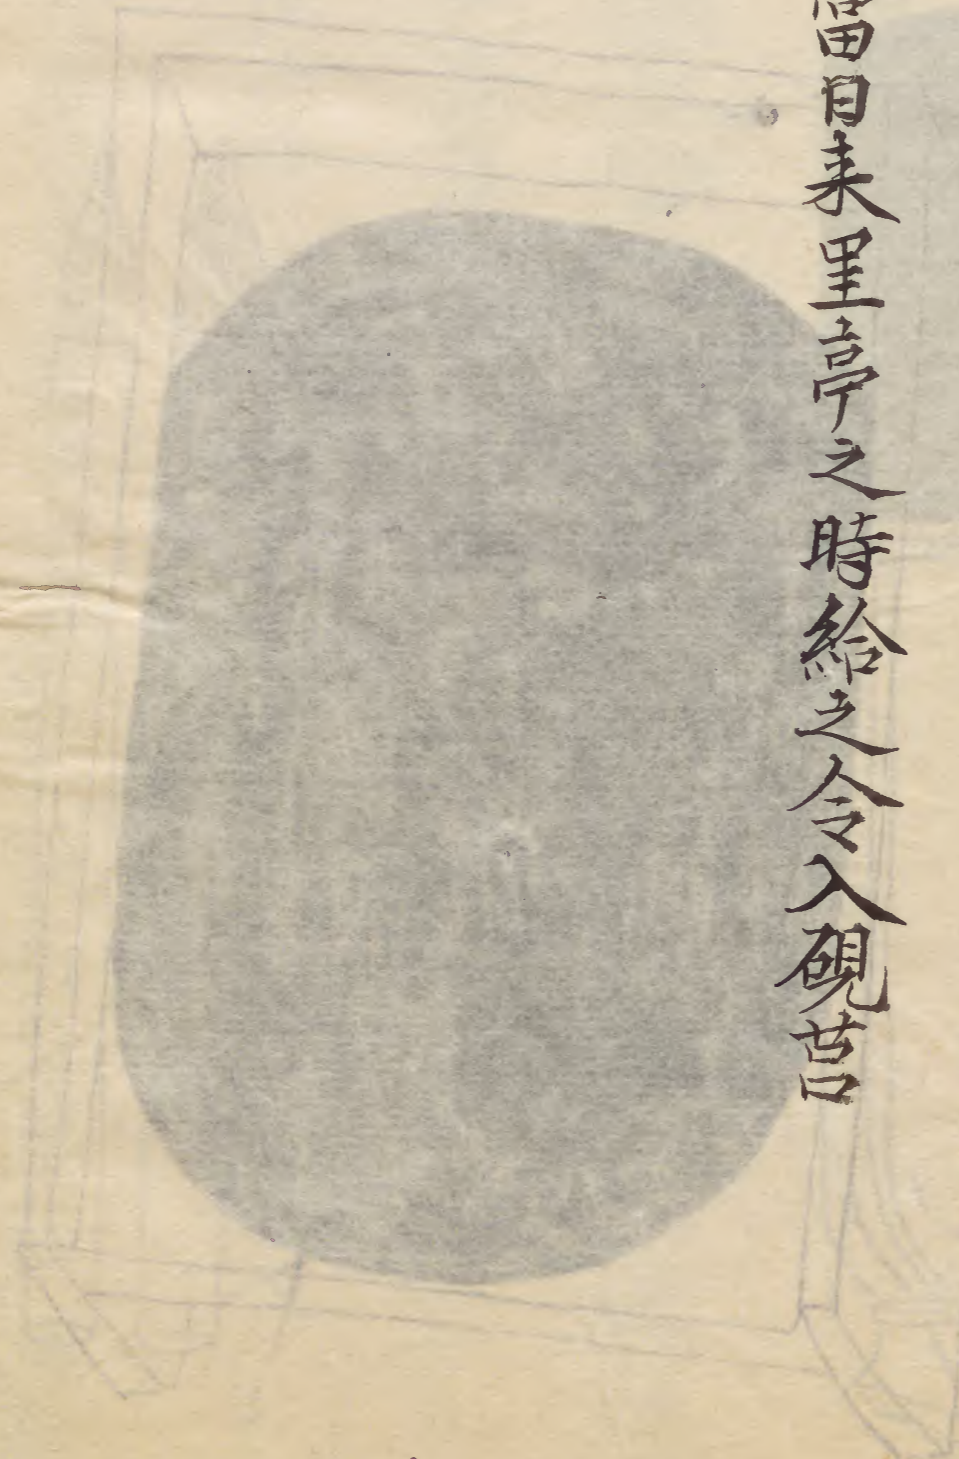 當日来里亭之時給之令入硯莒